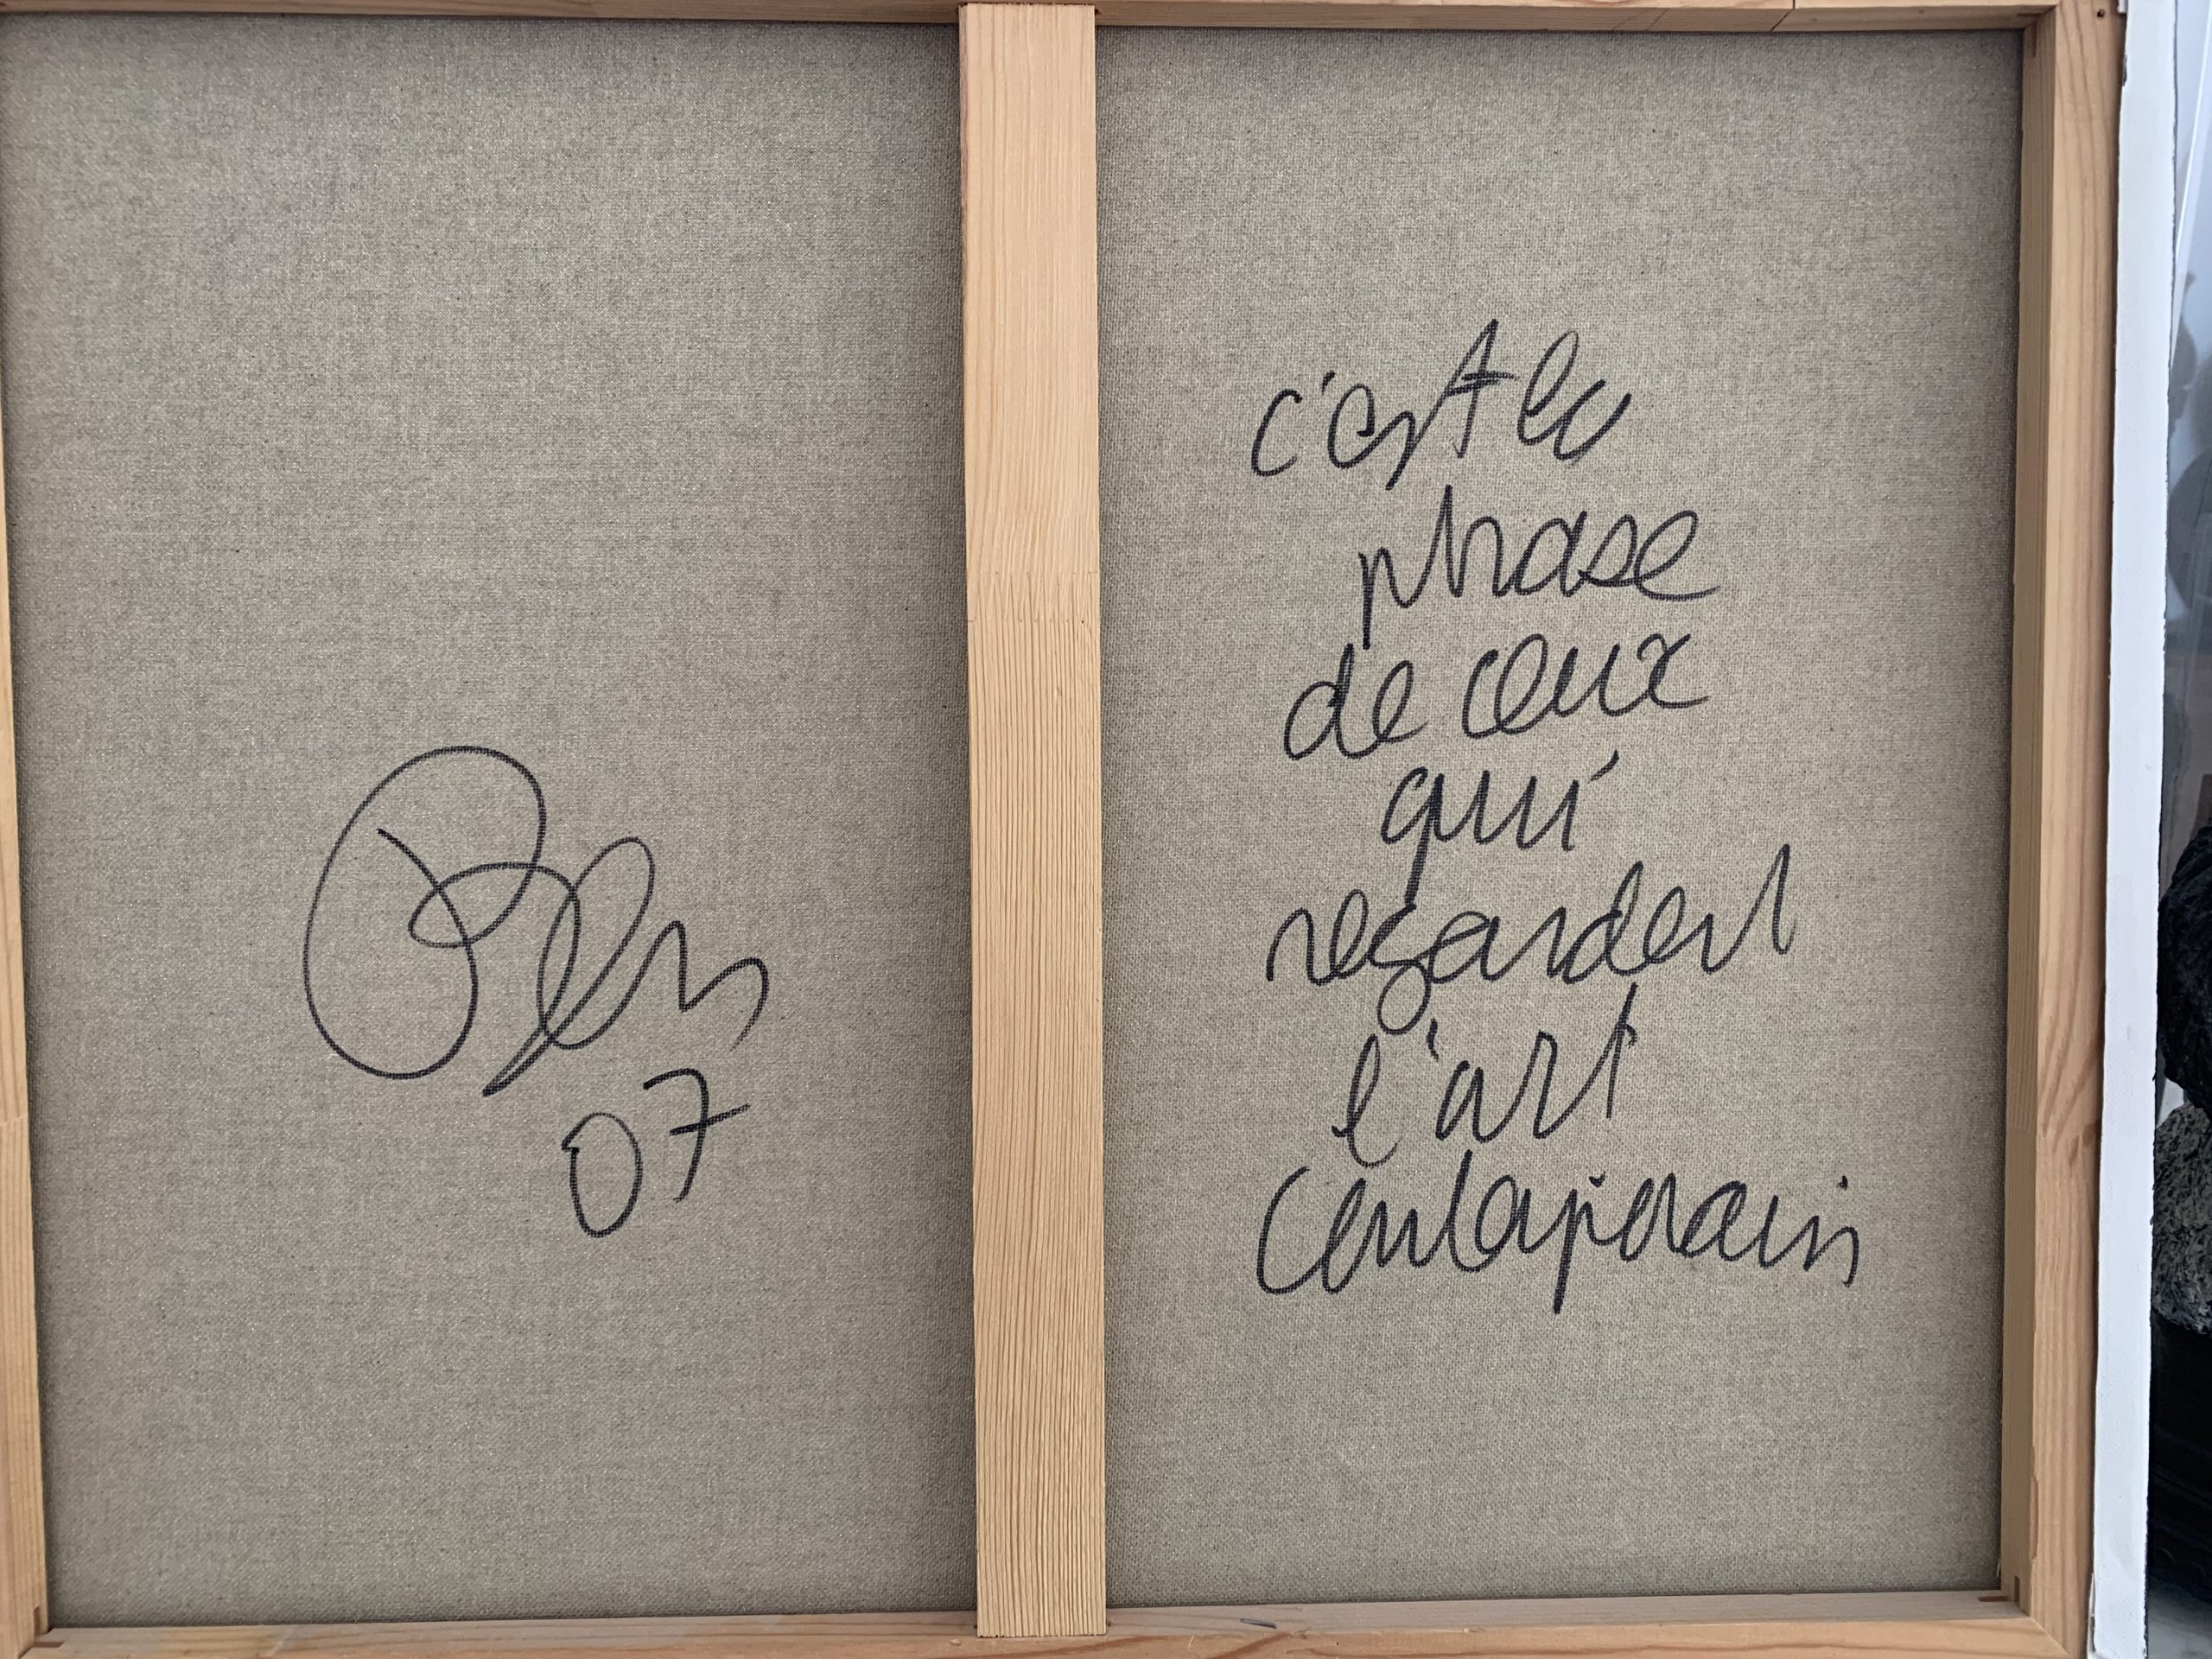 Ben
07
c'est la
phase
de ceux
qui
regardent
l'art
contemporain